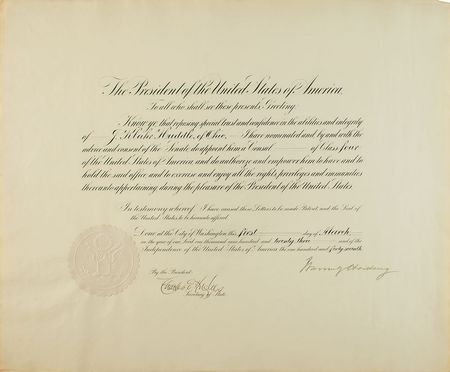 The President of the United States of America.
To all who shall see these presents, Greeting:
Know ye, that reposing special trust and confidence in the abilities and integrity
of J. Klahr Huddle, of Ohio, I have nominated and by and with the
advice and consent of the Senate do appoint him a Consul of Class four
of the United States of America and do authorize and empower him to have and to
hold the said office and to exercise and enjoy all the rights, privileges and immunities
thereunto appertaining during the pleasure of the President of the United States.
In testimony whereof, I have caused these Letters to be made Patent, and the Seal of
the United States to be hereunto affixed.
Done at the City of Washington this first day of March,
in the year of our Lord one thousand nine hundred and twenty three and of the
Independence of the United States of America the one hundred and forty seventh.
By the President:
Warren G Harding
Charles E. Hughes
Secretary of State.